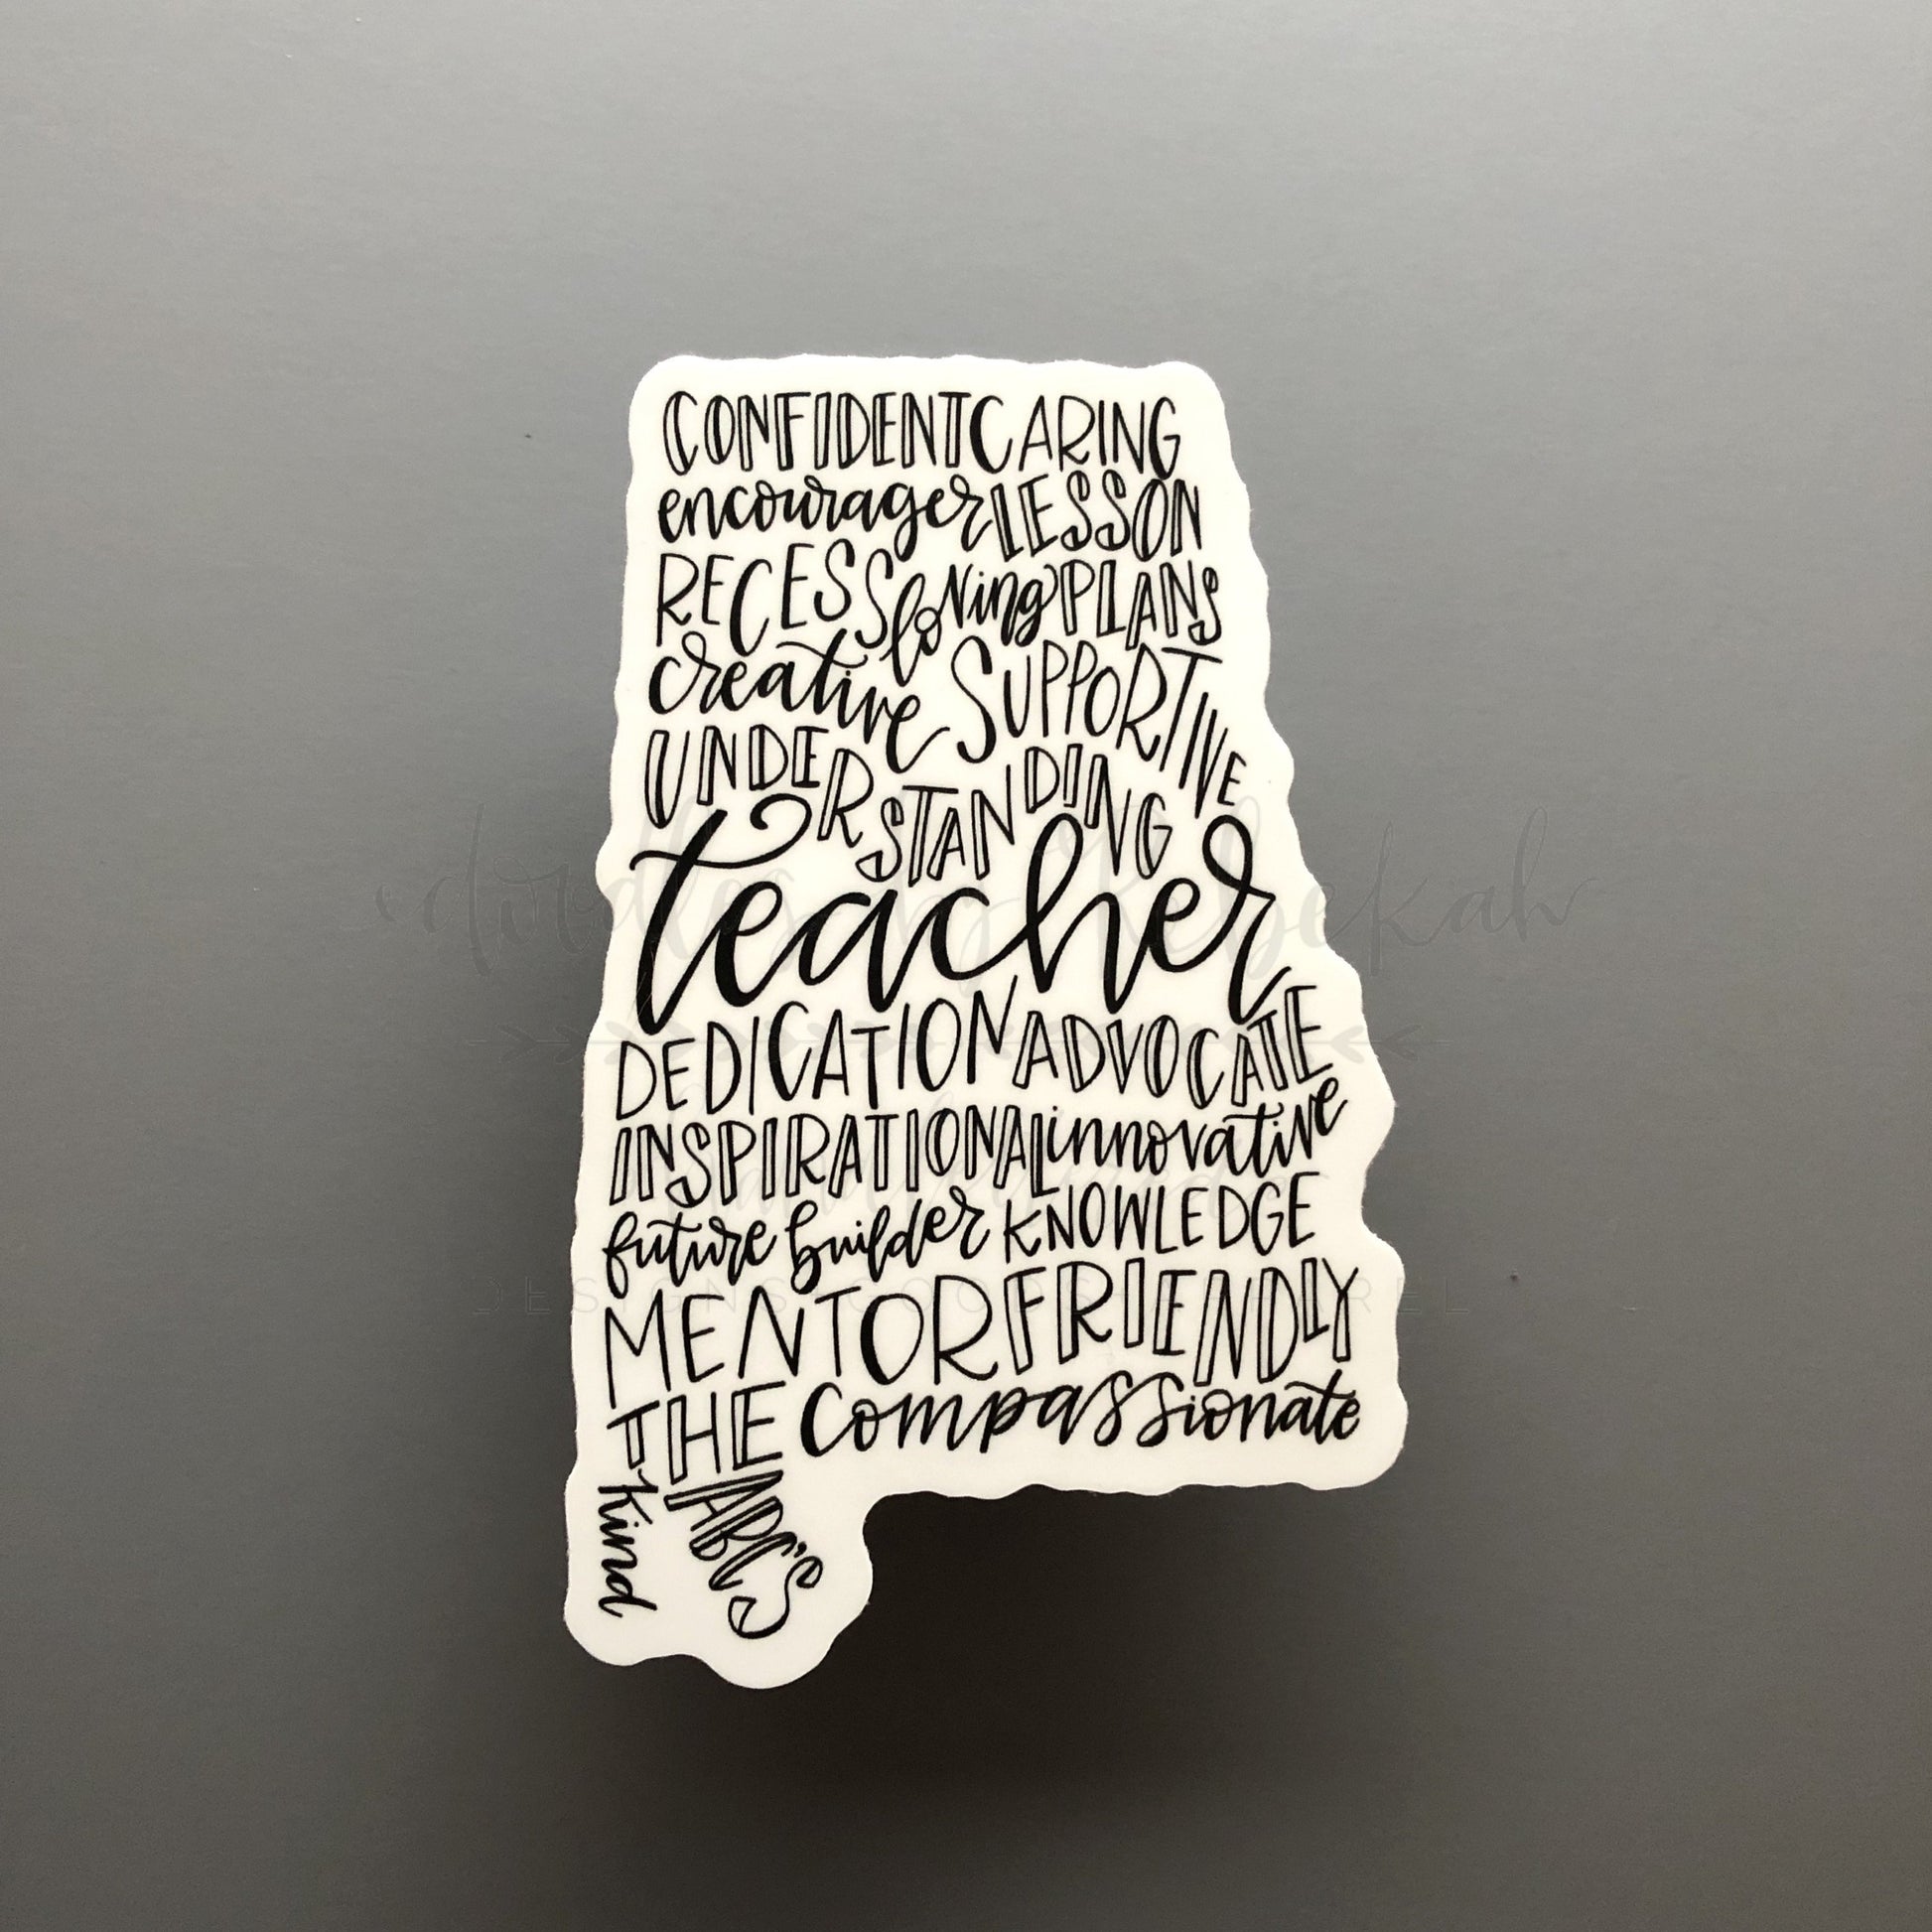 CONFIDENT CARING
encourager LESSON
RECESS loving PLANS
creative SUPPORTIVE
UNDERSTANDING
teacher
doodles by Rebekah
DEDICATION ADVOCATE
INSPIRATIONAL innovative
future builder KNOWLEDGE
DESIGNS GOODS APPAREL
MENTOR FRIENDLY
THE compassionate
ABC'S
kind